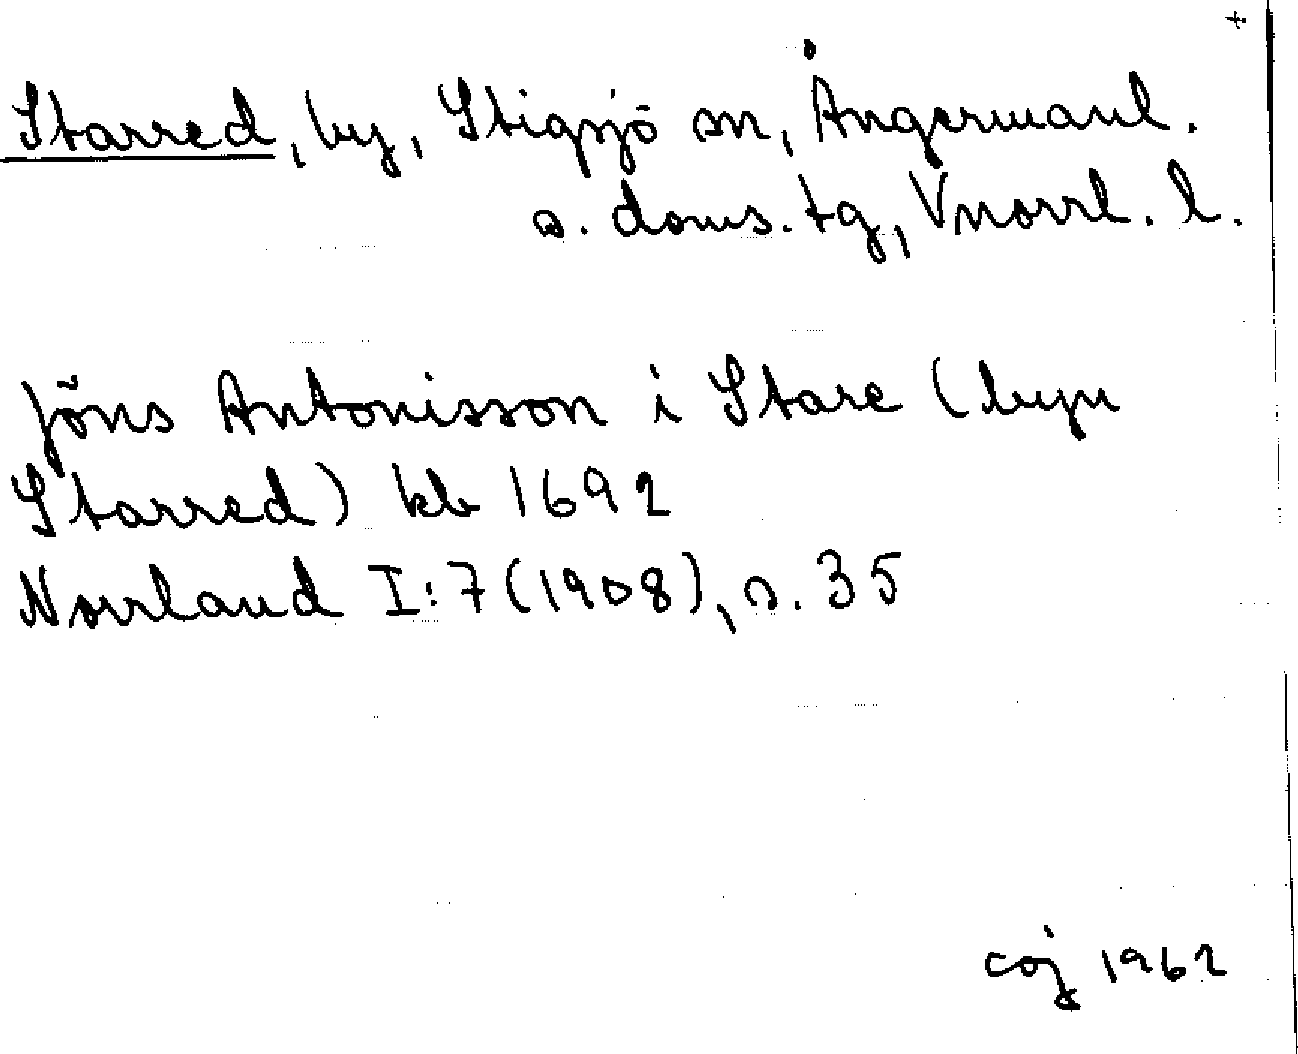 +.
Starred, by, Stigsjö sn, Ångermanl.
s. doms. tg, Vnorrl. l.
Jöns Antonisson i Stare (byn
Starred) kb 1692
Norrland I:7 (1908), s. 35
coj 1962